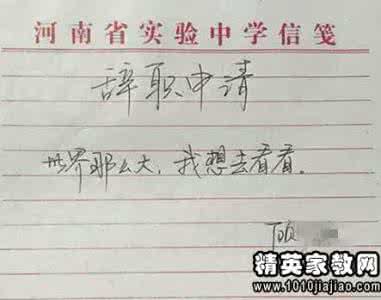 河南省实验中学信笺
辞职申请
世界那么大，我想去看看。
顾
精英家教网
www.1010jiajiao.com